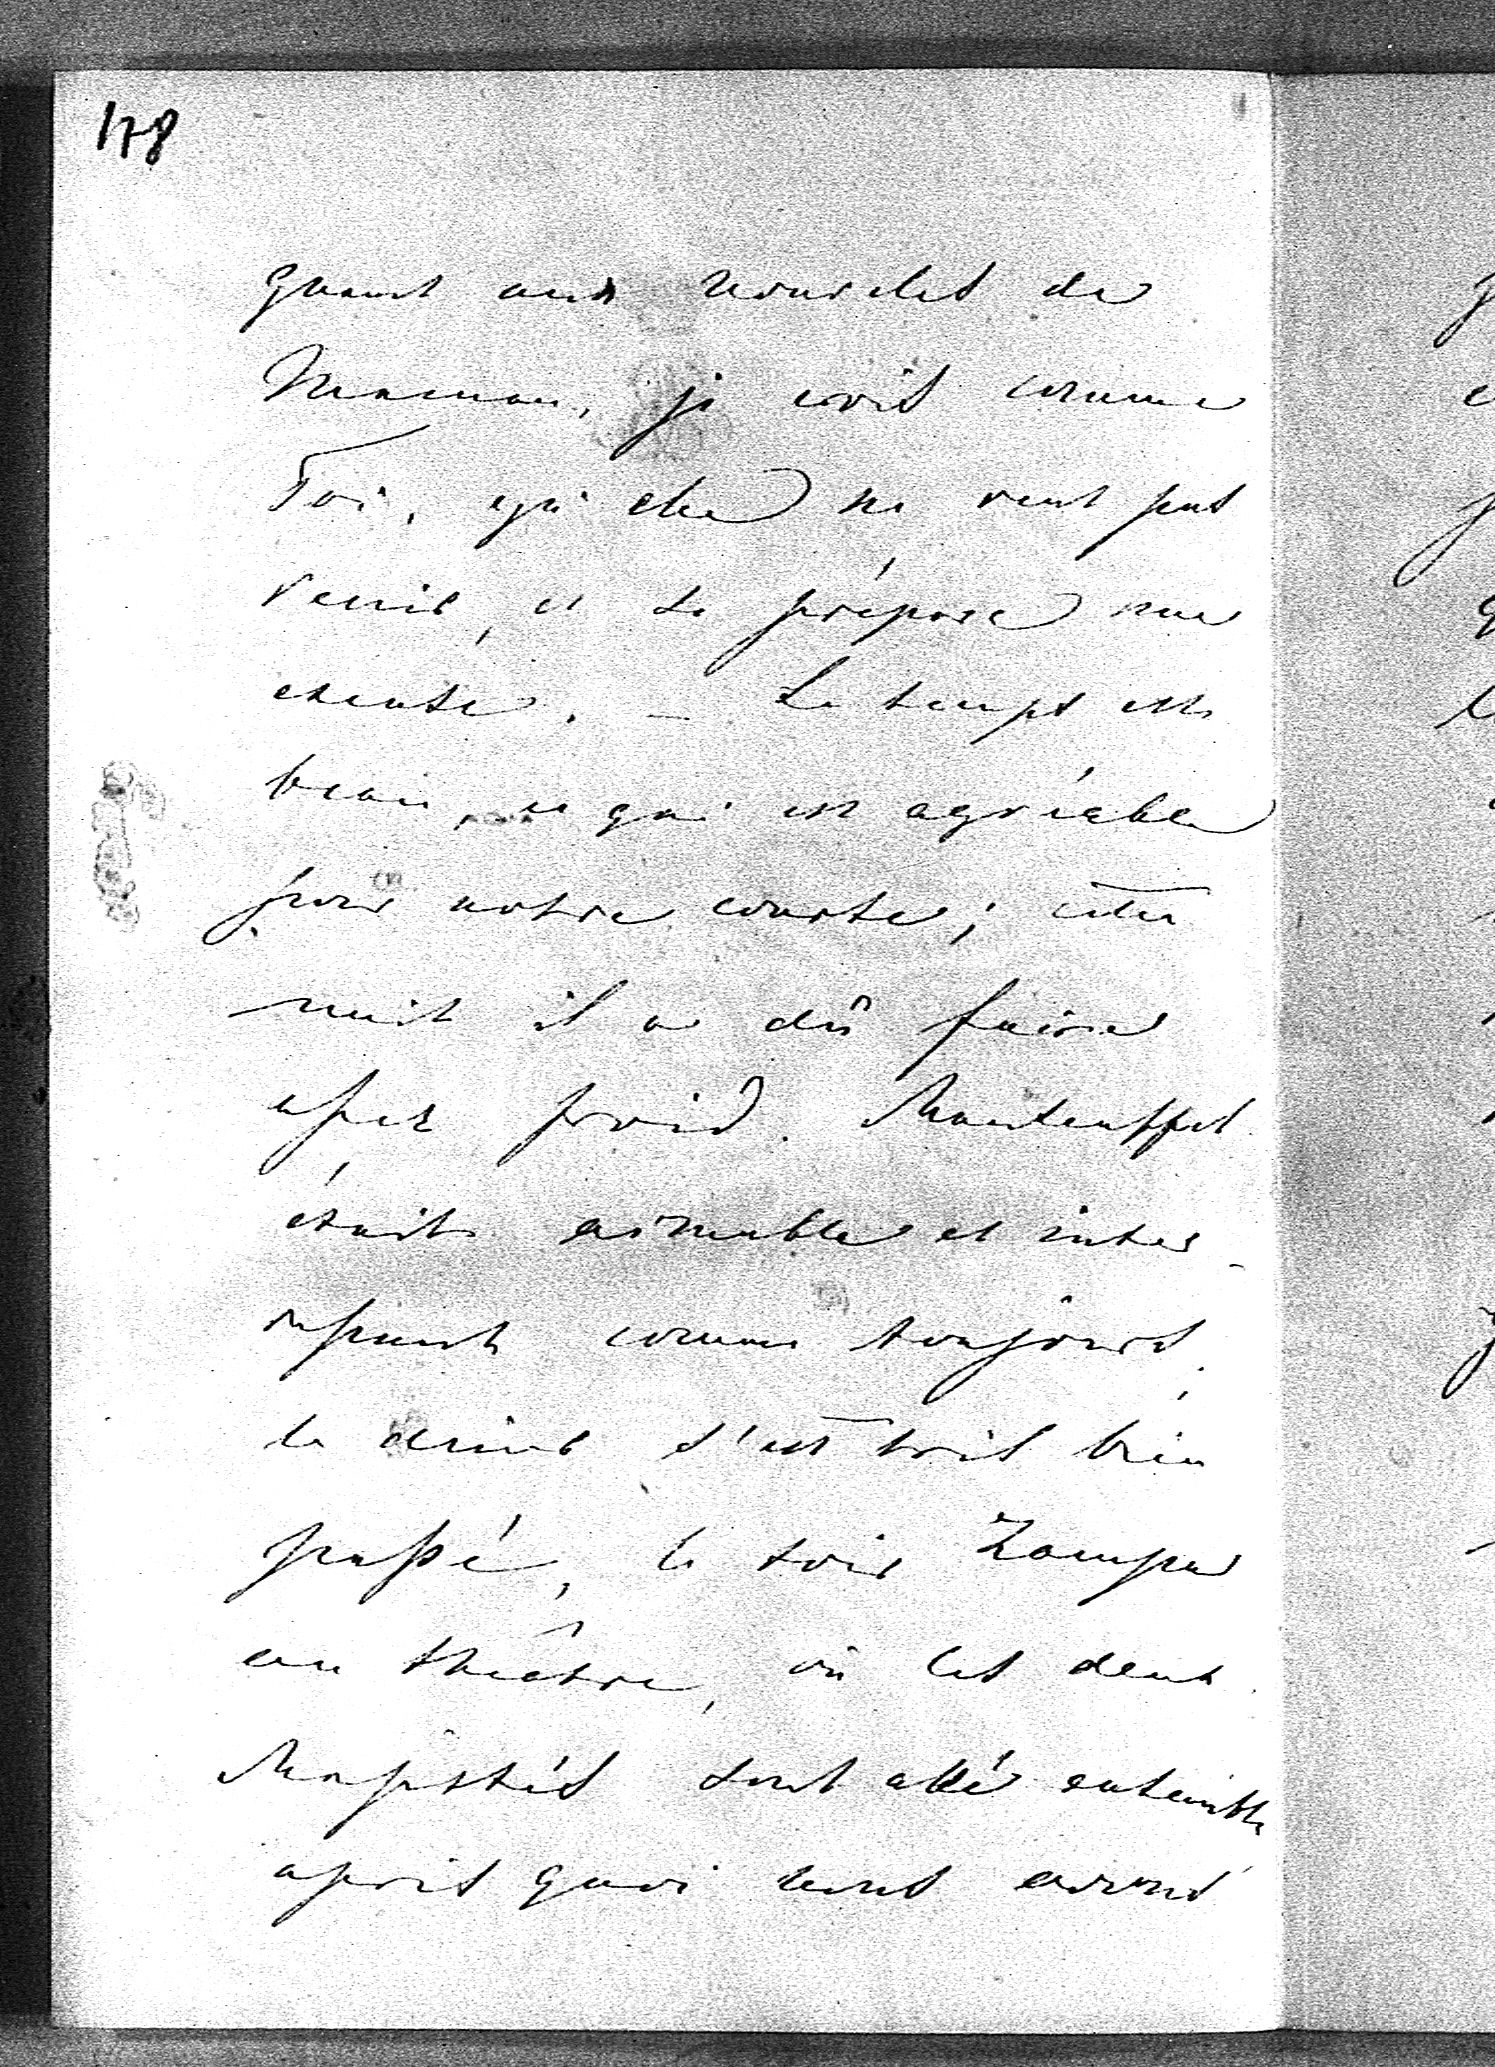 178
quant aux nouveles de
Maman, je crois comme
Toi, que elle ne veut pas
venir, et se prépare une
excuse. — Le temps est
beau, ce qui est agréable
pour notre course; cette
nuit il a dû faire
assez froid. Manteuffel
était aimable et inter-
essant comme toujours,
le diner s'est très bien
passé, le soir Zampa
au théatre, où les deux
Majestés sont allé ensemble
après quoi nous avons